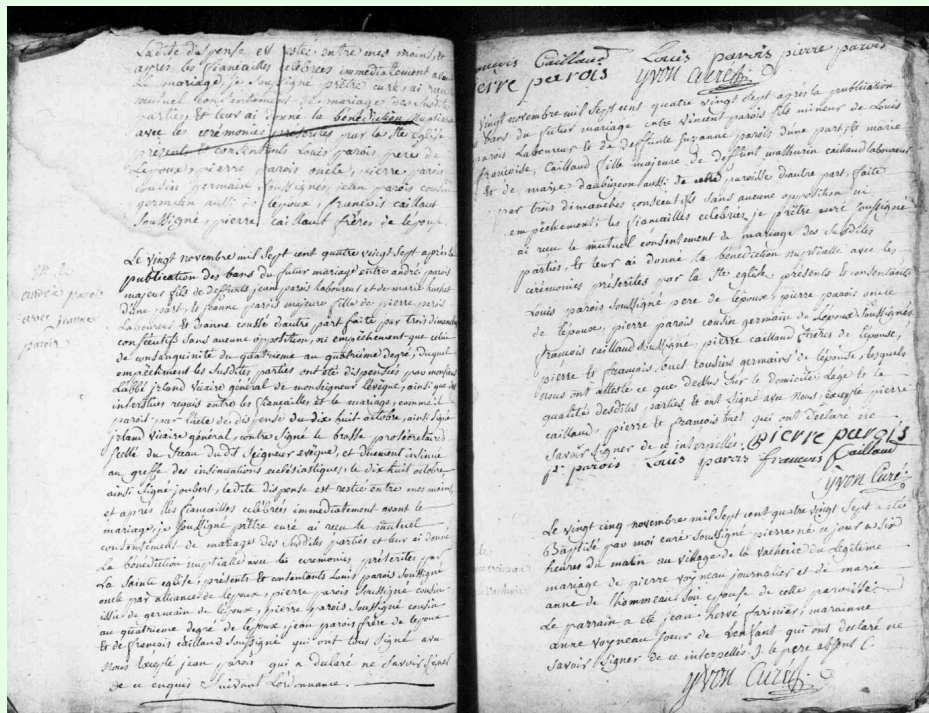 Ladite dispense est restée entre mes mains, et
après les fiancailles célébrées immediatement avant
le mariage, je soussigné prêtre curé, ai recu
mutuel consentement de mariage des susdits
parties et leur ai donné la bénédiction nuptiale
avec les cérémonies préscrites par la Ste église
présents et consentants Louis parois pere de
Lépoux, pierre parois oncle, pierre parois
cousin germain soussignés, jean parois cousin
germain aussi de lépoux, francois caillaut
soussigné, pierre caillaut frères de lépouse.
Le vingt novembre mil sept cent quatre vingt sept après la
publication des bans du futur mariage entre andré parois
majeur fils de deffunts jean parois laboureur et de marie huet
d'une part, et jeanne parois majeure fille de pierre parois
Laboureur et d'anne cousse d'autre part faite par trois dimanches
consécutifs sans aucune opposition, ni empêchement que celui
de consanguinité du quatrieme au quatrième degré, duquel
empêchement les susdites parties ont été dispensées par monsieur
L'abbé jrland vicaire général de monseigneur Levêque, ainsi que des
interstices requis entre les fiancailles et le mariage, comme il
paroit par l'acte de dispense du dix huit octobre, ainsi signé
jrland vicaire général, contre signé le brasse prosécrétaire,
scellé du sceau dudit seigneur evêque, et duement insinué
au greffe des insinuations eclésiastiques, le dix huit octobre
ainsi signé joubert, ladite dispense est restée entre mes mains
et après les fiancailles celebrées immediatement avant le
mariage, je soussigné prêtre curé ai recu le mutuel
consentement de mariage des susdites parties et leur ai donné
La bénédiction nuptialle avec les ceremonies préscrites par
La Sainte eglise, présents et consentants Louis parois soussigné
oncle par alliance de lépoux, pierre parois soussigné cousin
issu de germain de lépoux, pierre parois soussigné cousin
au quatrième degré de lépoux jean parois frère de lépoux
et de francois caillaud soussigné qui ont tous signé avec
Nous excepté jean parois qui a declaré ne savoir signer
de ce enquis suivant Lordonnance.
andré parois
avec jeanne
parois
francois Caillaud Louis parois pierre parois
pierre parois yvon curé
vingt novembre mil sept cent quatre vingt sept après la publication
bans du futur mariage entre vincent parois fils mineur de Louis
parois Laboureur et de deffunte suzanne parois d'une part, et marie
francoise Caillaud fille majeure de deffunt mathurin caillaud laboureur
et de marie daubigeon aussi de cette paroisse d'autre part, faite
par trois dimanches consecutifs sans aucune opposition ni
empêchement; les fiancailles celebrées je prêtre curé soussigné
ai recu le mutuel consentement de mariage des susdites
parties, et leur ai donné la bénédiction nuptialle avec les
cérémonies préscrites par la Ste eglise, présents et consentants
Louis parois soussigné pere de lépoux, pierre parois oncle
de lépoux, pierre parois cousin germain de Lépoux soussignés
francois caillaud soussigné, pierre caillaud frères de lépouse,
pierre et francois huet cousins germains de lépouse, lesquels
nous ont attesté ce que dessus sur le domicile, l'age et la
qualité desdites parties et ont signé avec Nous, excepté pierre
caillaud, pierre et francois huet qui ont declaré ne
savoir signer de ce interpellés. pierre parois
p. parois Louis parois francois Caillaud
yvon Curé
Le vingt cinq novembre mil sept cent quatre vingt sept a été
Baptisé par moi curé soussigné pierre né ce jour a six
heures du matin au village de la vacherie du legitime
mariage de pierre voyneau journalier et de marie
anne de lhommeau son epouse de cette paroisse.
Le parrain a été jean hervé farinier, marainne
anne voyneau soeur de Lenfant qui ont declaré ne
savoir signer de ce interpellés. le pere absent.
yvon Curé